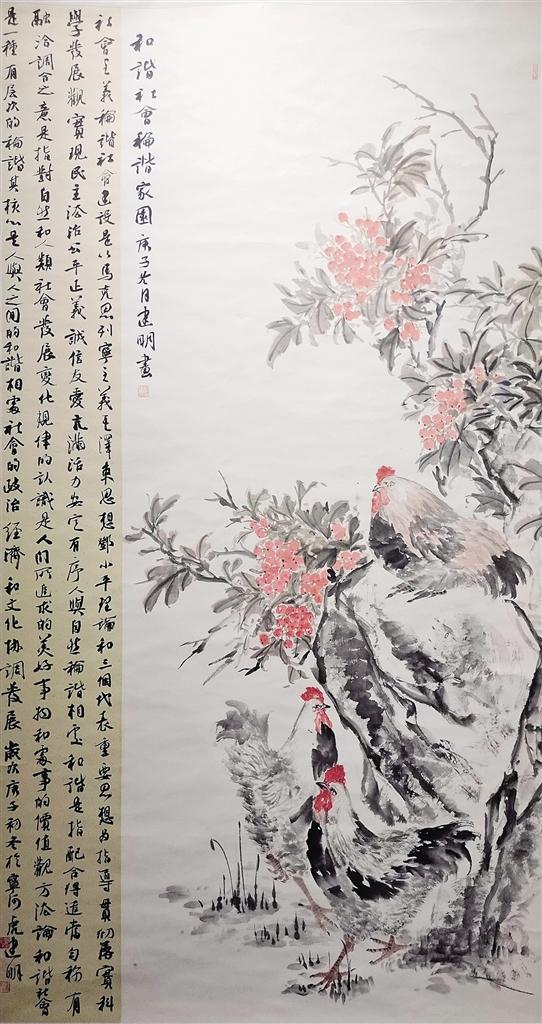 和諧社會稐諧家園庚子冬月建明畫
社會主義稐諧社會建設是以馬克思列寧主義毛澤東思想鄧小平理論和三個代表重要思想為指導貫彻落實科
學發展觀實現民主法治公平正義誠信友愛充滿活力安定有序人與自然稐諧相處和諧是指配合得適當勻稱有
融洽調合之意是指對自然和人類社會發展變化規律的認識是人们所追求的美好事物和處事的價值觀方法論和諧社會
是一種有层次的稐諧其核心是人與人之间的和諧相處社會的政治經濟和文化協調發展歲次庚子初冬於寧河虎建明